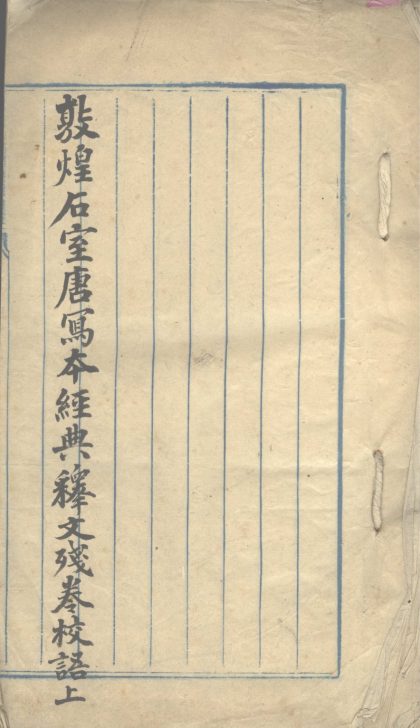 敦煌石室唐寫本經典釋文殘卷校語上